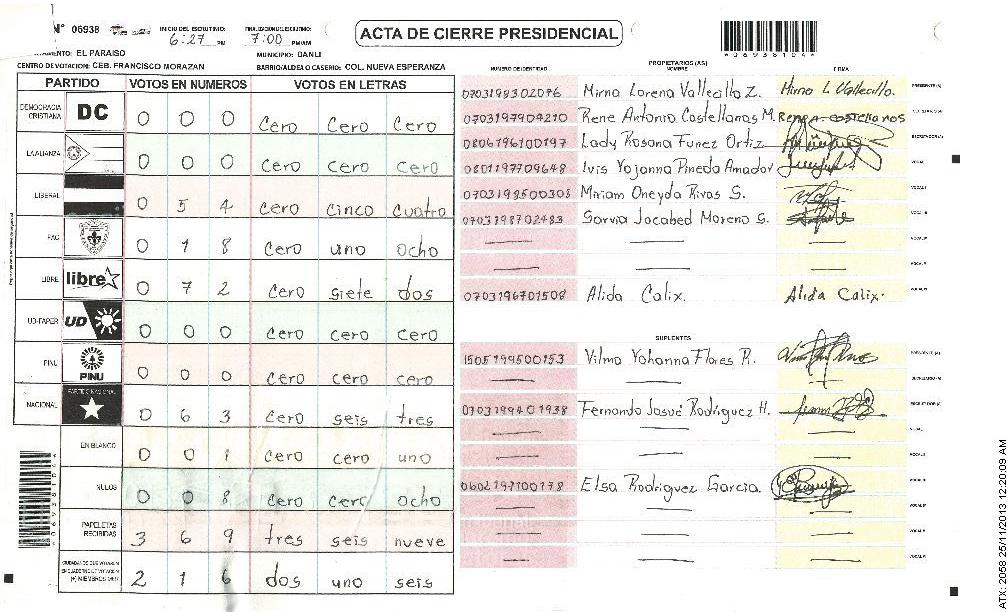 N° 06938
INICIO DEL ESCRUTINIO: 6:27 PM
FINALIZACION ESCRUTINIO: 7:00 PM/AM
ACTA DE CIERRE PRESIDENCIAL
*06938104*
EL PARAISO
MUNICIPIO: DANLI
CENTRO DE VOTACION: CEB. FRANCISCO MORAZAN
BARRIO/ALDEA O CASERIO: COL. NUEVA ESPERANZA
PARTIDO VOTOS EN NUMEROS VOTOS EN LETRAS
DEMOCRACIA CRISTIANA DC 0 0 0 Cero Cero Cero
LA ALIANZA 0 0 0 Cero cero cero
LIBERAL 0 5 4 Cero cinco cuatro
PAC 0 1 8 Cero uno ocho
LIBRE libre 0 7 2 Cero siete dos
UD-FAPER UD 0 0 0 Cero cero cero
PINU PINU 0 0 0 Cero cero cero
NACIONAL PARTIDO NACIONAL 0 6 3 Cero seis tres
EN BLANCO 0 0 1 Cero cero uno
NULOS 0 0 8 Cero cero ocho
PAPELETAS RECIBIDAS 3 6 9 tres seis nueve
CIUDADANOS QUE VOTARON
(+) MIEMBROS MER 2 1 6 dos uno seis
PROPIETARIOS (AS)
NUMERO DE IDENTIDAD NOMBRE FIRMA
0703198302076 Mirna Lorena Vallecillo Z. Mirna L Vallecillo. PRESIDENTE (A)
0703197904210 Rene Antonio Castellanos M. Rene A castellanos
0806196100197 Lady Rosana Funez Ortiz SECRETARIO (A)
0801197709648 Ivis Yojanna Pineda Amador VOCAL
0703198500308 Miriam Oneyda Rivas G.
0703198702483 Sarvia Jacabed Moreno G.
0703196701508 Alida Calix. Alida Calix.
SUPLENTES
1505199500153 Vilma Yohanna Flores R. PRESIDENTE (A)
SECRETARIO (A)
0703199401938 Fernando Josué Rodriguez H. ESCRUTADOR (A)
0602197100178 Elsa Rodriguez Garcia.
*06938104*
ATX: 2058 25/11/2013 12:20:09 AM